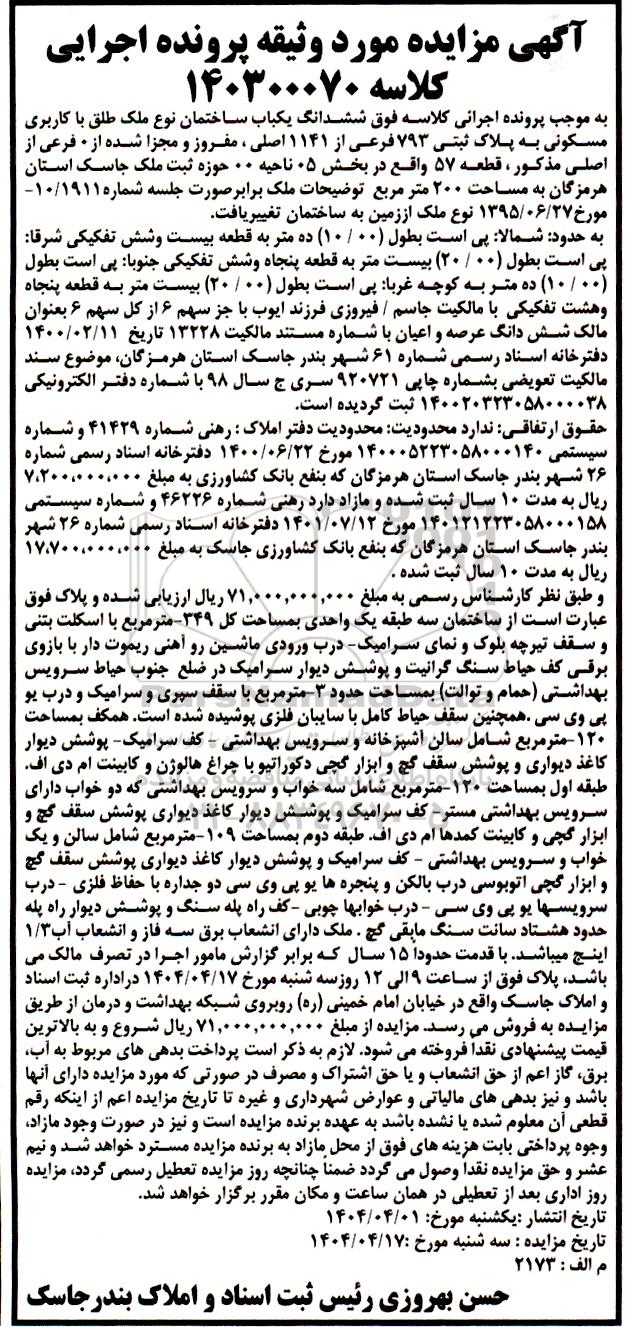 آگهی مزایده مورد وثیقه پرونده اجرایی
کلاسه ۱۴۰۳۰۰۰۷۰
به موجب پرونده اجرائی کلاسه فوق ششدانگ یکباب ساختمان نوع ملک طلق با کاربری
مسکونی به پلاک ثبتی ۷۹۳ فرعی از ۱۱۴۱ اصلی ، مفروز و مجزا شده از ۰ فرعی از
اصلی مذکور ، قطعه ۵۷ واقع در بخش ۰۵ ناحیه ۰۰ حوزه ثبت ملک جاسک استان
هرمزگان به مساحت ۲۰۰ متر مربع توضیحات ملک برابر صورت جلسه شماره ۱۰/۱۹۱۱-
مورخ ۱۳۹۵/۰۶/۲۷ نوع ملک از زمین به ساختمان تغییر یافت.
به حدود: شمالا: پی است بطول (۰۰ / ۱۰) ده متر به قطعه بیست وشش تفکیکی شرقا:
پی است بطول (۰۰ / ۲۰) بیست متر به قطعه پنجاه وشش تفکیکی جنوبا: پی است بطول
(۰۰ / ۱۰) ده متر به کوچه غربا: پی است بطول (۰۰ / ۲۰) بیست متر به قطعه پنجاه
وهشت تفکیکی با مالکیت جاسم / فیروزی فرزند ایوب با جز سهم ۶ از کل سهم ۶ بعنوان
مالک شش دانگ عرصه و اعیان با شماره مستند مالکیت ۱۳۲۲۸ تاریخ ۱۴۰۰/۰۲/۱۱
دفترخانه اسناد رسمی شماره ۶۱ شهر بندر جاسک استان هرمزگان، موضوع سند
مالکیت تعویضی بشماره چاپی ۹۲۰۷۲۱ سری ج سال ۹۸ با شماره دفتر الکترونیکی
۱۴۰۰۲۰۳۲۳۰۵۸۰۰۰۰۳۸ ثبت گردیده است.
حقوق ارتفاقی: ندارد محدودیت: محدودیت دفتر املاک : رهنی شماره ۴۱۴۲۹ و شماره
سیستمی ۱۴۰۰۰۵۲۲۳۰۵۸۰۰۰۱۴۰ مورخ ۱۴۰۰/۰۶/۲۲ دفترخانه اسناد رسمی شماره
۲۶ شهر بندر جاسک استان هرمزگان که بنفع بانک کشاورزی به مبلغ ۷,۲۰۰,۰۰۰,۰۰۰
ریال به مدت ۱۰ سال ثبت شده و مازاد دارد رهنی شماره ۴۶۲۲۶ و شماره سیستمی
۱۴۰۱۲۱۲۲۳۰۵۸۰۰۰۱۵۸ مورخ ۱۴۰۱/۰۷/۱۲ دفترخانه اسناد رسمی شماره ۲۶ شهر
بندر جاسک استان هرمزگان که بنفع بانک کشاورزی جاسک به مبلغ ۱۷,۷۰۰,۰۰۰,۰۰۰
ریال به مدت ۱۰ سال ثبت شده .
و طبق نظر کارشناس رسمی به مبلغ ۷۱,۰۰۰,۰۰۰,۰۰۰ ریال ارزیابی شده و پلاک فوق
عبارت است از ساختمان سه طبقه یک واحدی بمساحت کل ۳۴۹-مترمربع با اسکلت بتنی
و سقف تیرچه بلوک و نمای سرامیک- درب ورودی ماشین رو آهنی ریموت دار با بازوی
برقی کف حیاط سنگ گرانیت و پوشش دیوار سرامیک در ضلع جنوب حیاط سرویس
بهداشتی (حمام و توالت) بمساحت حدود ۳-مترمربع با سقف سپری و سرامیک و درب یو
پی وی سی .همچنین سقف حیاط کامل با سایبان فلزی پوشیده شده است. همکف بمساحت
۱۲۰-مترمربع شامل سالن آشپزخانه و سرویس بهداشتی - کف سرامیک- پوشش دیوار
کاغذ دیواری و پوشش سقف گچ و ابزار گچی دکوراتیو با چراغ هالوژن و کابینت ام دی اف.
طبقه اول بمساحت ۱۲۰-مترمربع شامل سه خواب و سرویس بهداشتی که دو خواب دارای
سرویس بهداشتی مستر- کف سرامیک و پوشش دیوار کاغذ دیواری پوشش سقف گچ و
ابزار گچی و کابینت کمدها ام دی اف. طبقه دوم بمساحت ۱۰۹-مترمربع شامل سالن و یک
خواب و سرویس بهداشتی - کف سرامیک و پوشش دیوار کاغذ دیواری پوشش سقف گچ
و ابزار گچی اتوبوسی درب بالکن و پنجره ها یو پی وی سی دو جداره با حفاظ فلزی - درب
سرویسها یو پی وی سی - درب خوابها چوبی -کف راه پله سنگ و پوشش دیوار راه پله
حدود هشتاد سانت سنگ مابقی گچ . ملک دارای انشعاب برق سه فاز و انشعاب آب۱/۳
اینچ میباشد. با قدمت حدودا ۱۵ سال که برابر گزارش مامور اجرا در تصرف مالک می
باشد، پلاک فوق از ساعت ۹ الی ۱۲ روز سه شنبه مورخ ۱۴۰۴/۰۴/۱۷ در اداره ثبت اسناد
و املاک جاسک واقع در خیابان امام خمینی (ره) روبروی شبکه بهداشت و درمان از طریق
مزایده به فروش می رسد. مزایده از مبلغ ۷۱,۰۰۰,۰۰۰,۰۰۰ ریال شروع و به بالاترین
قیمت پیشنهادی نقدا فروخته می شود. لازم به ذکر است پرداخت بدهی های مربوط به آب،
برق، گاز اعم از حق انشعاب و یا حق اشتراک و مصرف در صورتی که مورد مزایده دارای آنها
باشد و نیز بدهی های مالیاتی و عوارض شهرداری و غیره تا تاریخ مزایده اعم از اینکه رقم
قطعی آن معلوم شده یا نشده باشد به عهده برنده مزایده است و نیز در صورت وجود مازاد،
وجوه پرداختی بابت هزینه های فوق از محل مازاد به برنده مزایده مسترد خواهد شد و نیم
عشر و حق مزایده نقدا وصول می گردد ضمنا چنانچه روز مزایده تعطیل رسمی گردد، مزایده
روز اداری بعد از تعطیلی در همان ساعت و مکان مقرر برگزار خواهد شد.
تاریخ انتشار :یکشنبه مورخ: ۱۴۰۴/۰۴/۰۱
تاریخ مزایده : سه شنبه مورخ :۱۴۰۴/۰۴/۱۷
م الف : ۲۱۷۳
حسن بهروزی رئیس ثبت اسناد و املاک بندر جاسک